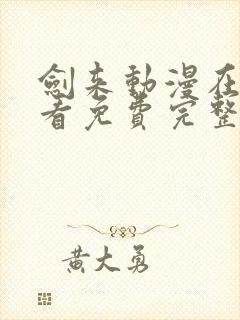 劍来動漫在
看免費完整
黃大勇